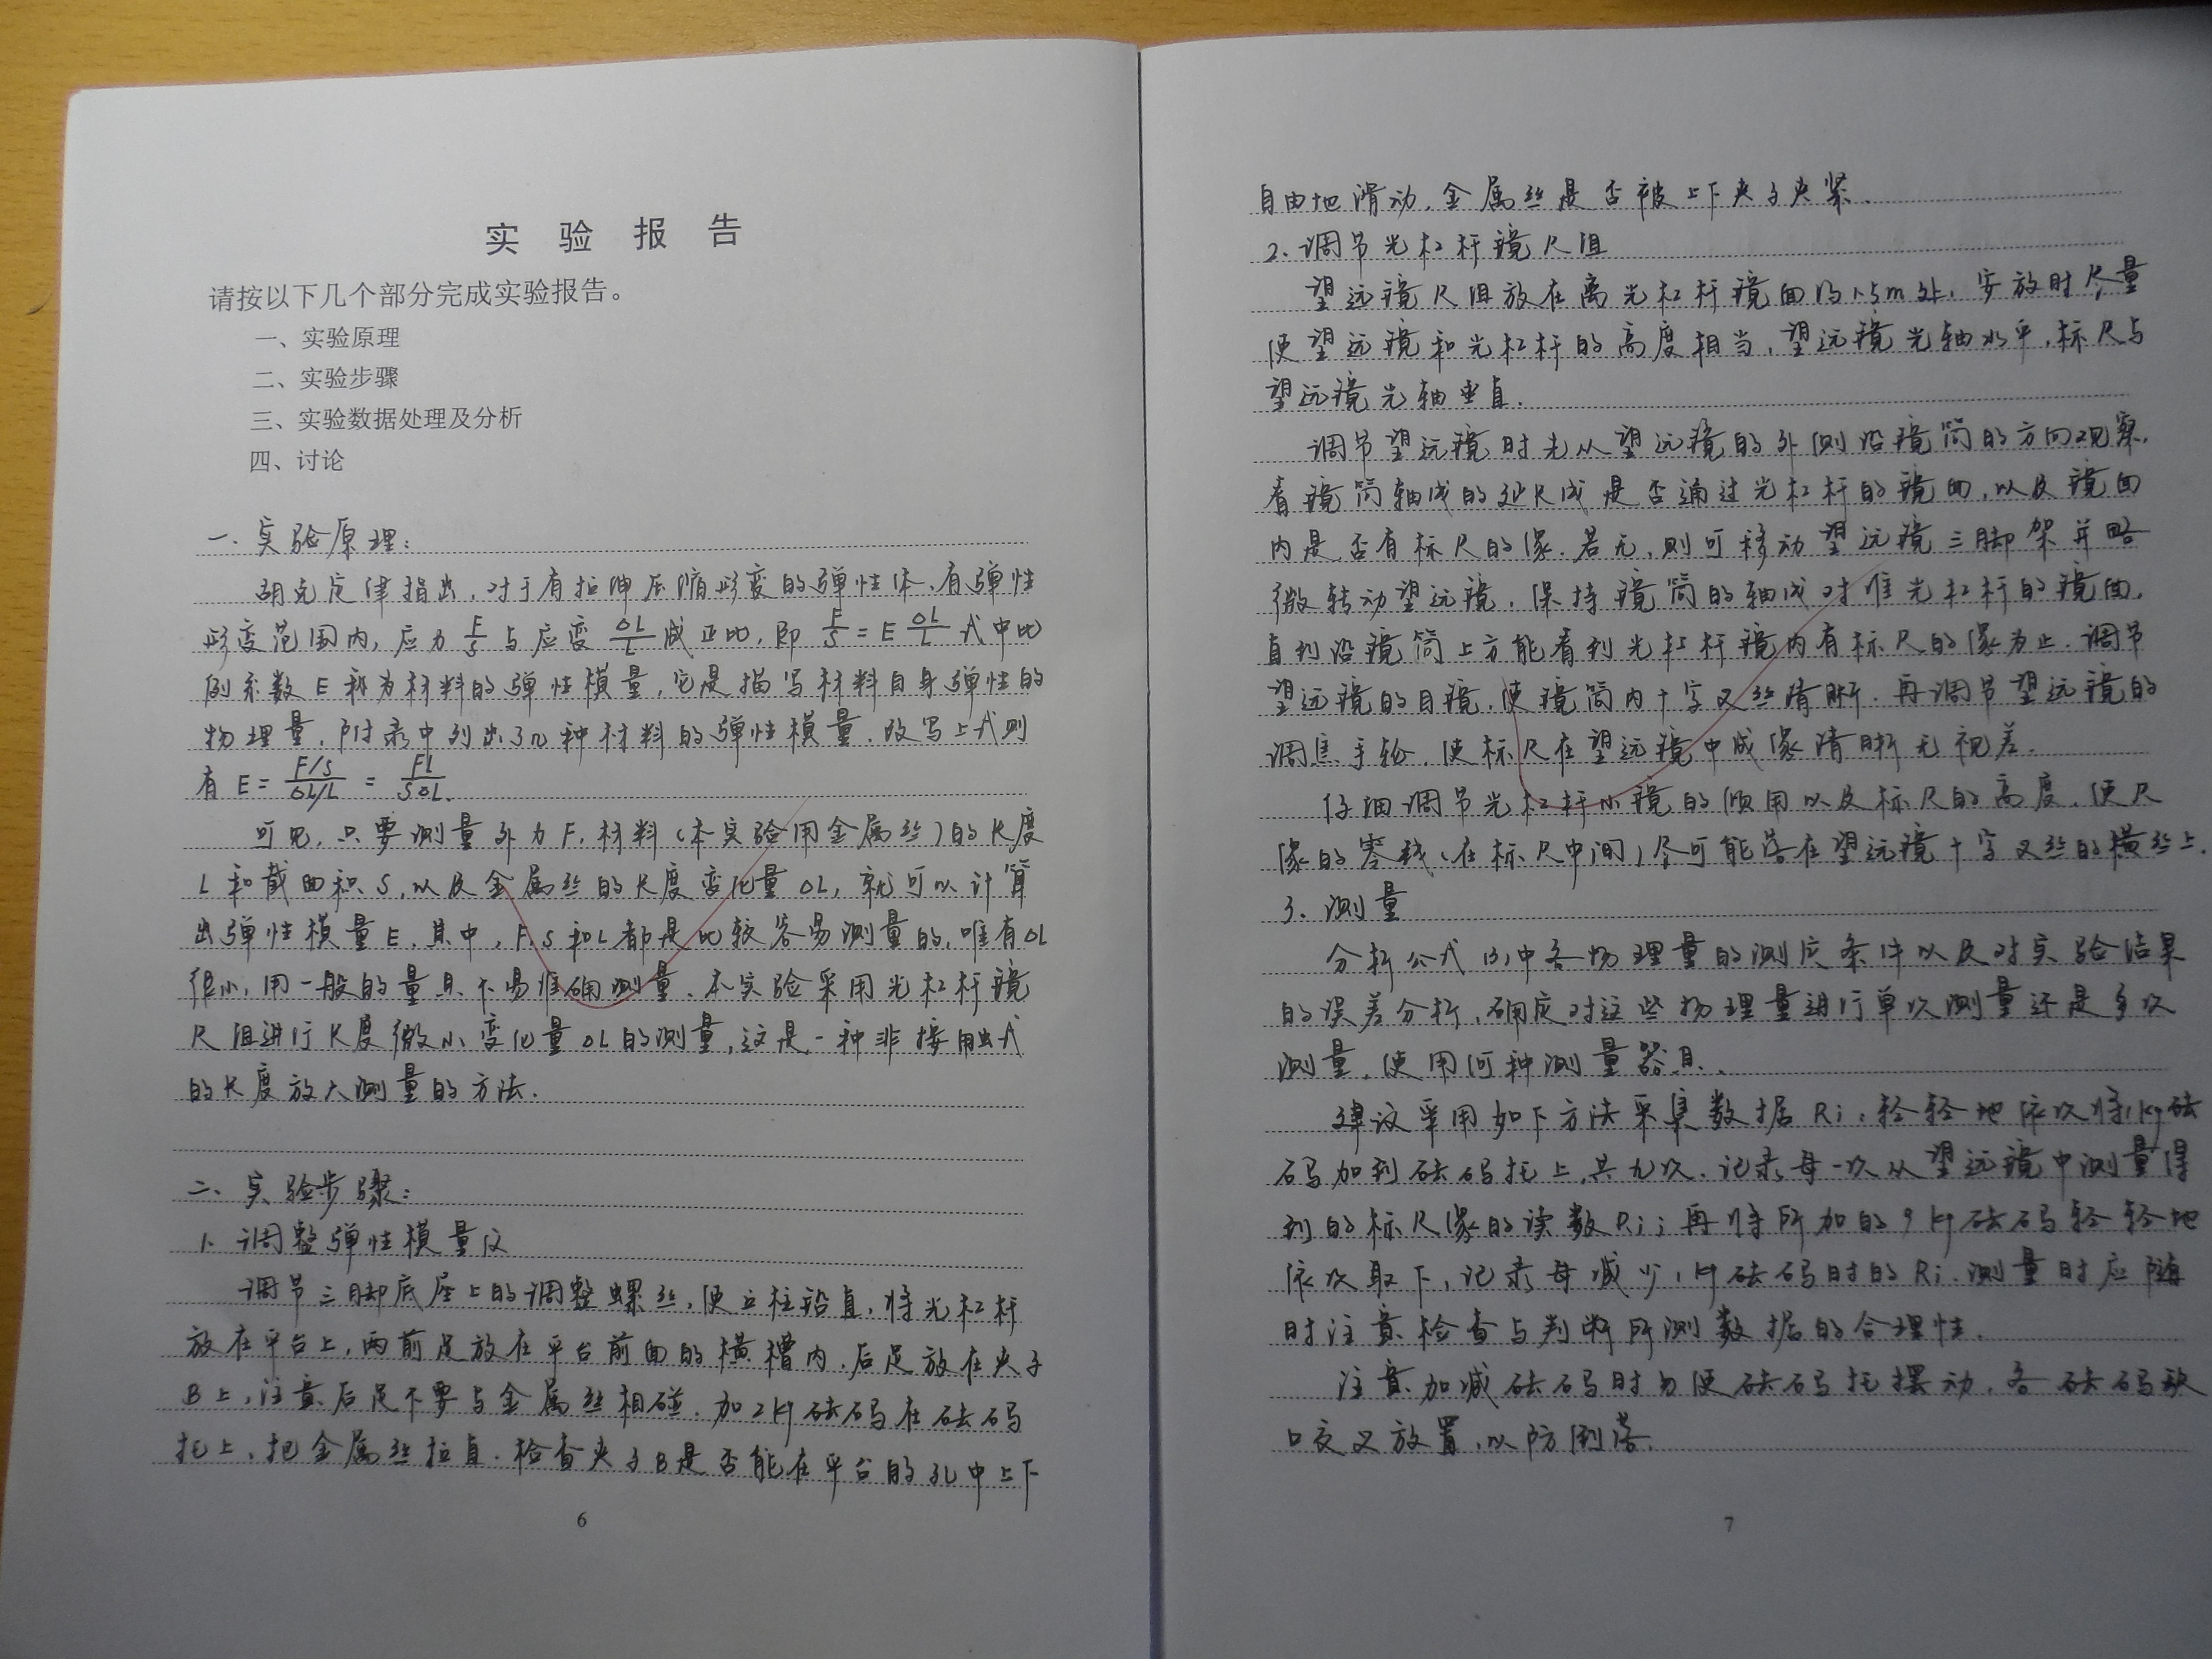 实 验 报 告
请按以下几个部分完成实验报告。
一、实验原理
二、实验步骤
三、实验数据处理及分析
四、讨论
一、实验原理：
胡克定律指出，对于有拉伸压缩形变的弹性体，有弹性
形变范围内，应力 F/S 与应变 ΔL/L 成正比，即 F/S = E ΔL/L 式中比
例系数 E 称为材料的弹性模量，它是描写材料自身弹性的
物理量，附录中列出了几种材料的弹性模量，改写上式则
有 E = (F/S)/(ΔL/L) = FL/(SΔL).
可见，只要测量外力 F，材料（本实验用金属丝）的长度
L 和截面积 S，以及金属丝的长度变化量 ΔL，就可以计算
出弹性模量 E．其中，F，S 和 L 都是比较容易测量的，唯有 ΔL
很小，用一般的量具不易准确测量．本实验采用光杠杆镜
尺组进行长度微小变化量 ΔL 的测量，这是一种非接触式
的长度放大测量的方法．
二、实验步骤：
1、调整弹性模量仪
调节三脚底座上的调整螺丝，使立柱铅直，将光杠杆
放在平台上，两前足放在平台前面的横槽内，后足放在夹子
B上，注意后足不要与金属丝相碰．加2kg砝码在砝码
托上，把金属丝拉直．检查夹子B是否能在平台的孔中上下
6
自由地滑动，金属丝是否被上下夹子夹紧．
2．调节光杠杆镜尺组
望远镜尺组放在离光杠杆镜面约1.5m处，安放时尽量
使望远镜和光杠杆的高度相当，望远镜光轴水平，标尺与
望远镜光轴垂直．
调节望远镜时先从望远镜的外侧沿镜筒的方向观察，
看镜筒轴线的延长线是否通过光杠杆的镜面，以及镜面
内是否有标尺的像．若无，则可移动望远镜三脚架并略
微转动望远镜，保持镜筒的轴线对准光杠杆的镜面，
直到沿镜筒上方能看到光杠杆镜内有标尺的像为止．调节
望远镜的目镜，使镜筒内十字叉丝清晰．再调节望远镜的
调焦手轮，使标尺在望远镜中成像清晰无视差．
仔细调节光杠杆小镜的倾角以及标尺的高度，使尺
像的零线（在标尺中间）尽可能落在望远镜十字叉丝的横丝上．
3、测量
分析公式(3)中各物理量的测定条件以及对实验结果
的误差分析，确定对这些物理量进行单次测量还是多次
测量，使用何种测量器具．
建议采用如下方法采集数据Ri：轻轻地依次将1kg砝
码加到砝码托上，共九次．记录每一次从望远镜中测量得
到的标尺像的读数Ri；再将所加的9kg砝码轻轻地
依次取下，记录每减少1kg砝码时的Ri．测量时应随
时注意检查与判断所测数据的合理性．
注意加减砝码时勿使砝码托摆动，各砝码缺
口交叉放置，以防倒落．
7